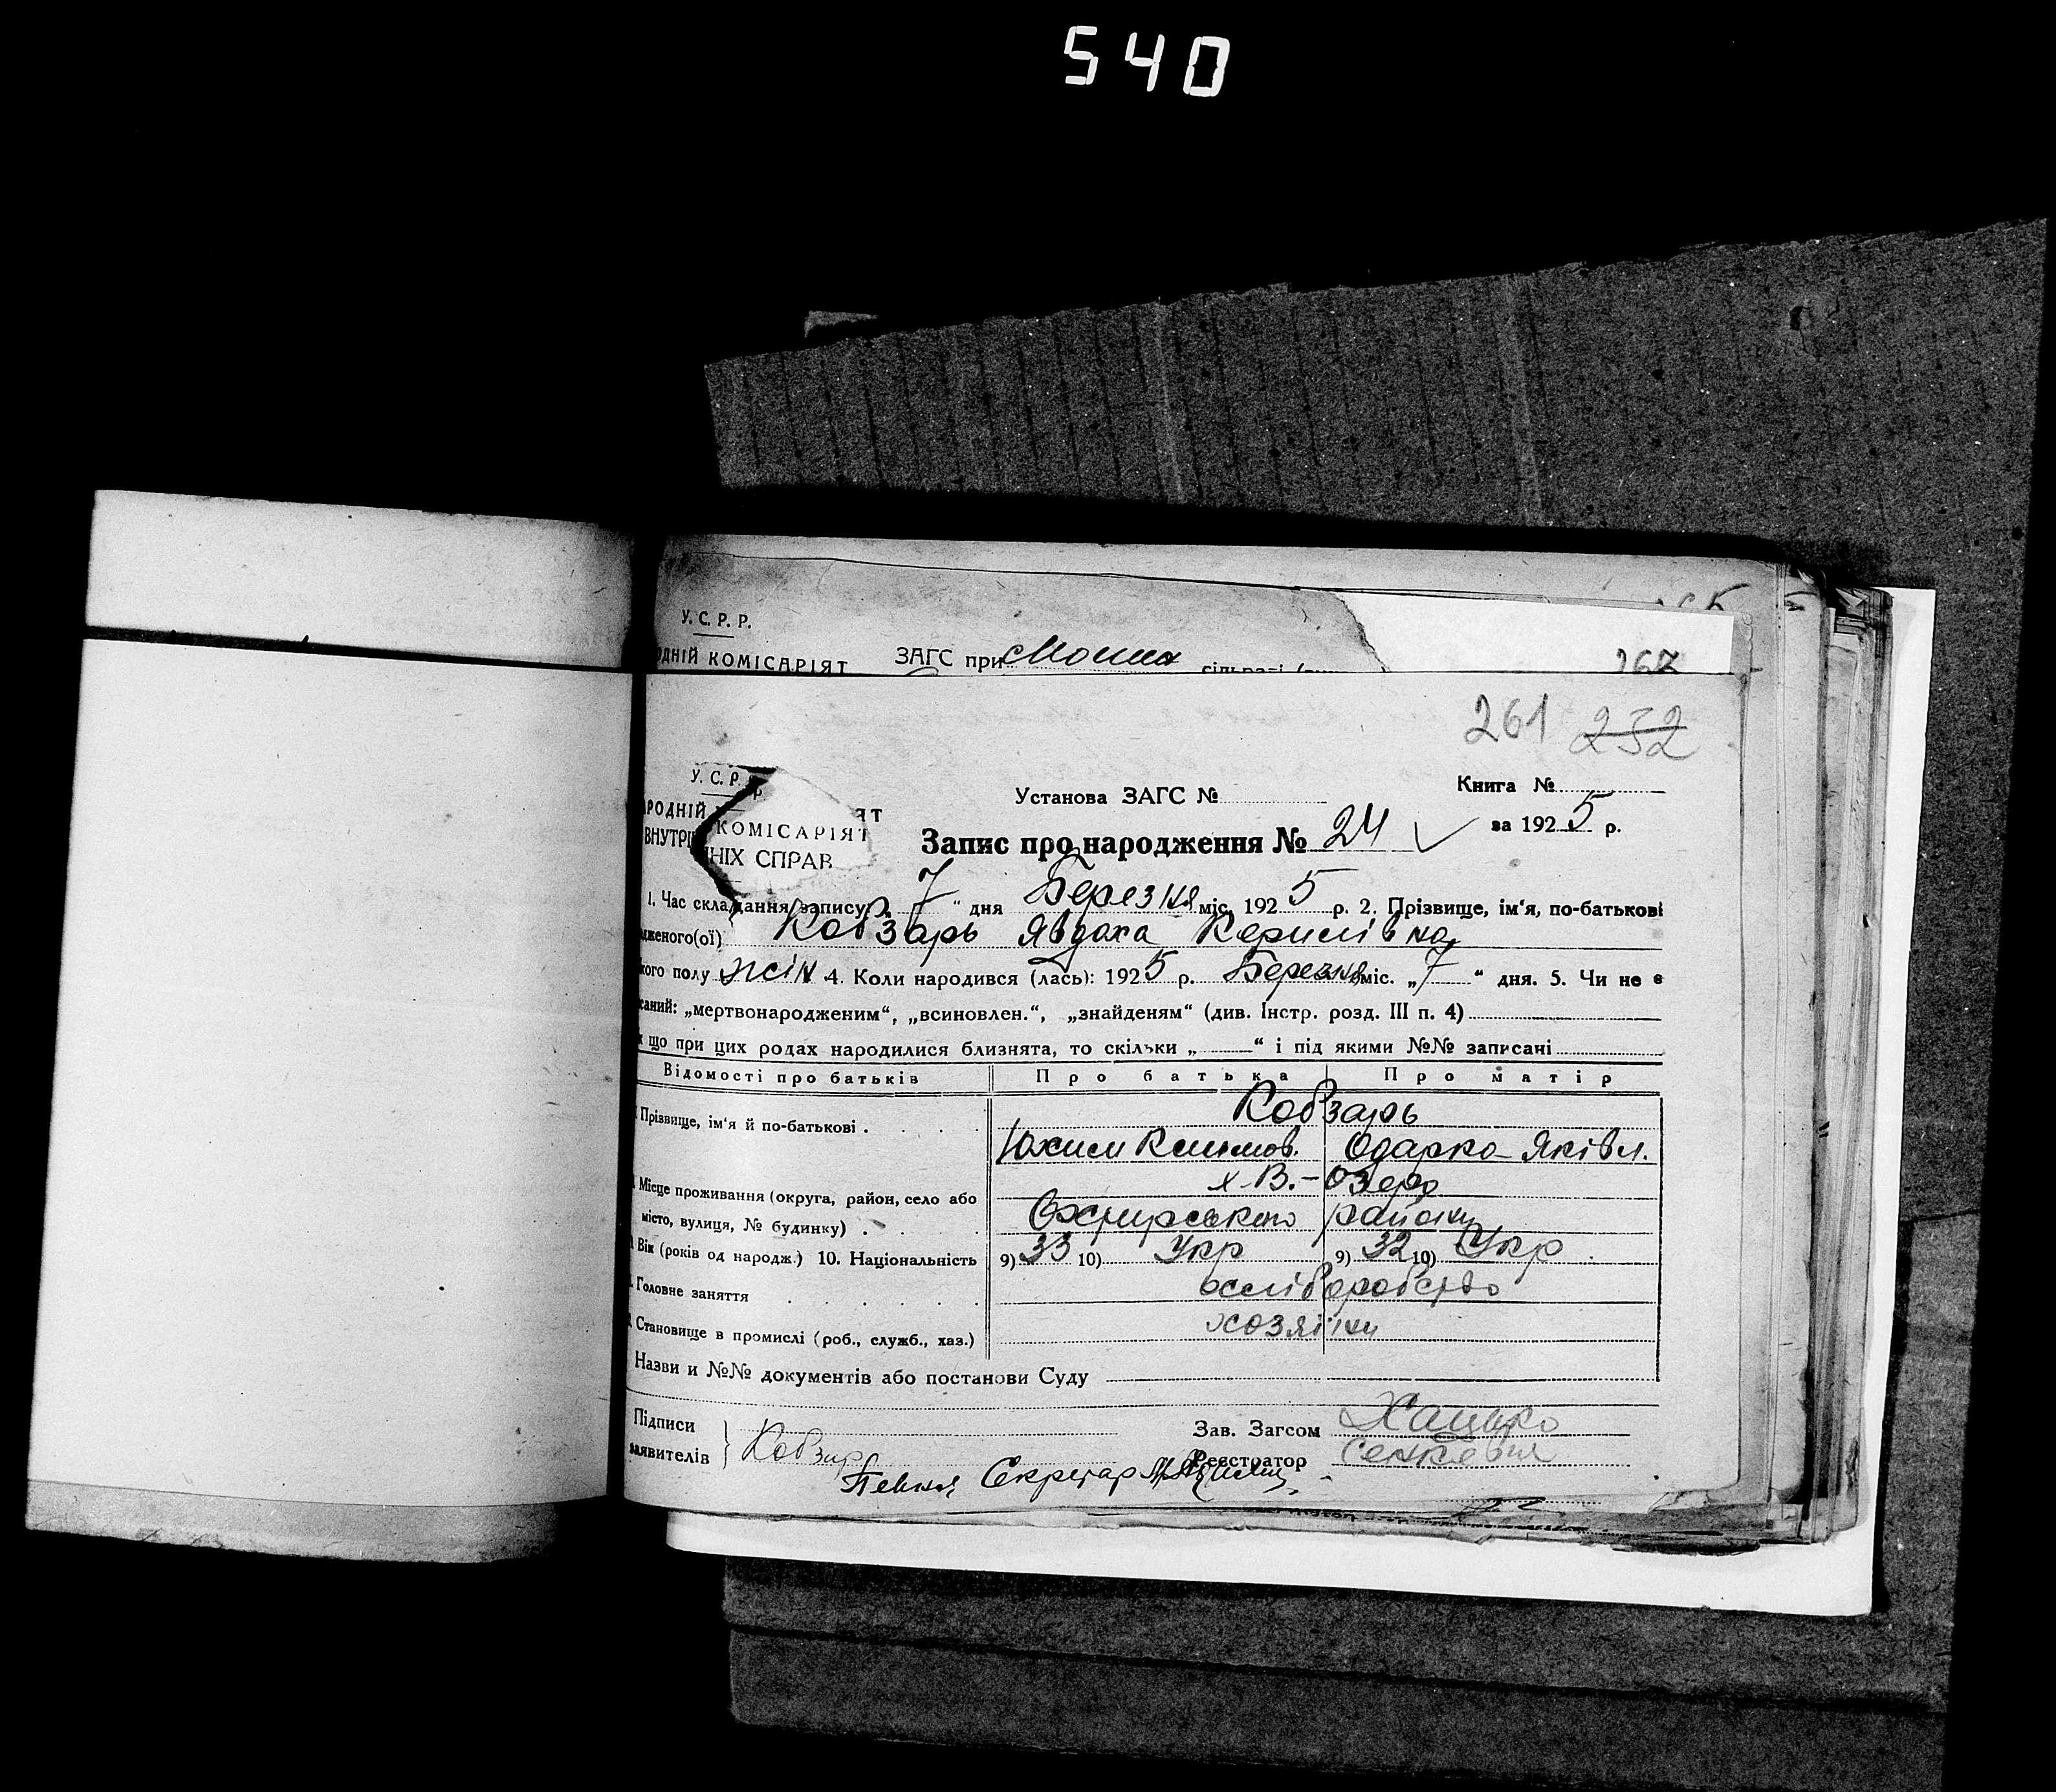 540
У. С. Р. Р.
ОДНІЙ КОМІСАРІЯТ ЗАГС при
267
261 252
У. С. Р. Р.
Установа ЗАГС № Книга №
РОДНІЙ КОМІСАРІЯТ
ВНУТРІ НІХ СПРАВ
Запис про народження № 24 за 1925 р.
1. Час складання запису: „ 7 “ дня Березня міс. 1925 р. 2. Прізвище, ім'я, по-батькові
дженого(ої) Кобзарь Явдоха
кого полу жін 4. Коли народився (лась): 1925 р. Березня міс. „7“ дня. 5. Чи не є
саний: „мертвонародженим“, „всиновлен.“, „знайденям“ (див. Інстр. розд. III п. 4)
що при цих родах народилися близнята, то скільки „ “ і під якими №№ записані
Відомості про батьків Про батька Про матір
Прізвище, ім'я й по-батькові . Кобзарь
Юхим Климов. Одарка Яківл.
Місце проживання (округа, район, село або х. В.-Озеро
місто, вулиця, № будинку) . району
Вік (років од народж.) 10. Національність 9) 33 10) Укр 9) 32 10) Укр
Головне заняття хліборобство
Становище в промислі (роб., служб., хаз.) хозяїни
Назви и №№ документів або постанови Суду
Підписи Зав. Загсом
заявителів Кобзар Реєстратор
Секретар